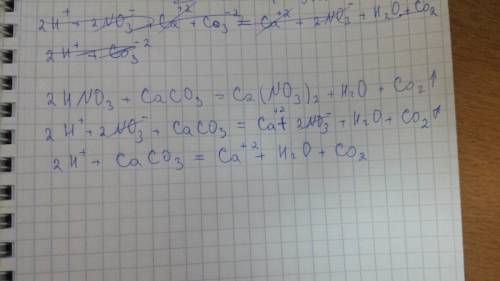 2H⁺ + 2NO₃⁻ Ca⁺² + Co₃⁻² = Ca⁺² + 2NO₃⁻ + H₂O + Co₂
2H⁺ + Co₃⁻²
2HNO₃ + CaCO₃ = Ca(NO₃)₂ + H₂O + Co₂↑
2H⁺ + 2NO₃⁻ + CaCO₃ = Ca⁺² + 2NO₃⁻ + H₂O + Co₂↑
2H⁺ + CaCO₃ = Ca⁺² + H₂O + CO₂